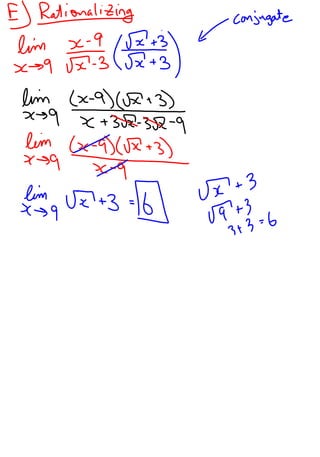 E) Rationalizing
conjugate
lim x→9 (x-9)/(√x-3) ((√x+3)/(√x+3))
lim x→9 ((x-9)(√x+3))/(x+3√x-3√x-9)
lim x→9 ((x-9)(√x+3))/(x-9)
lim x→9 √x+3 = 6
√x+3
√9+3
3+3=6